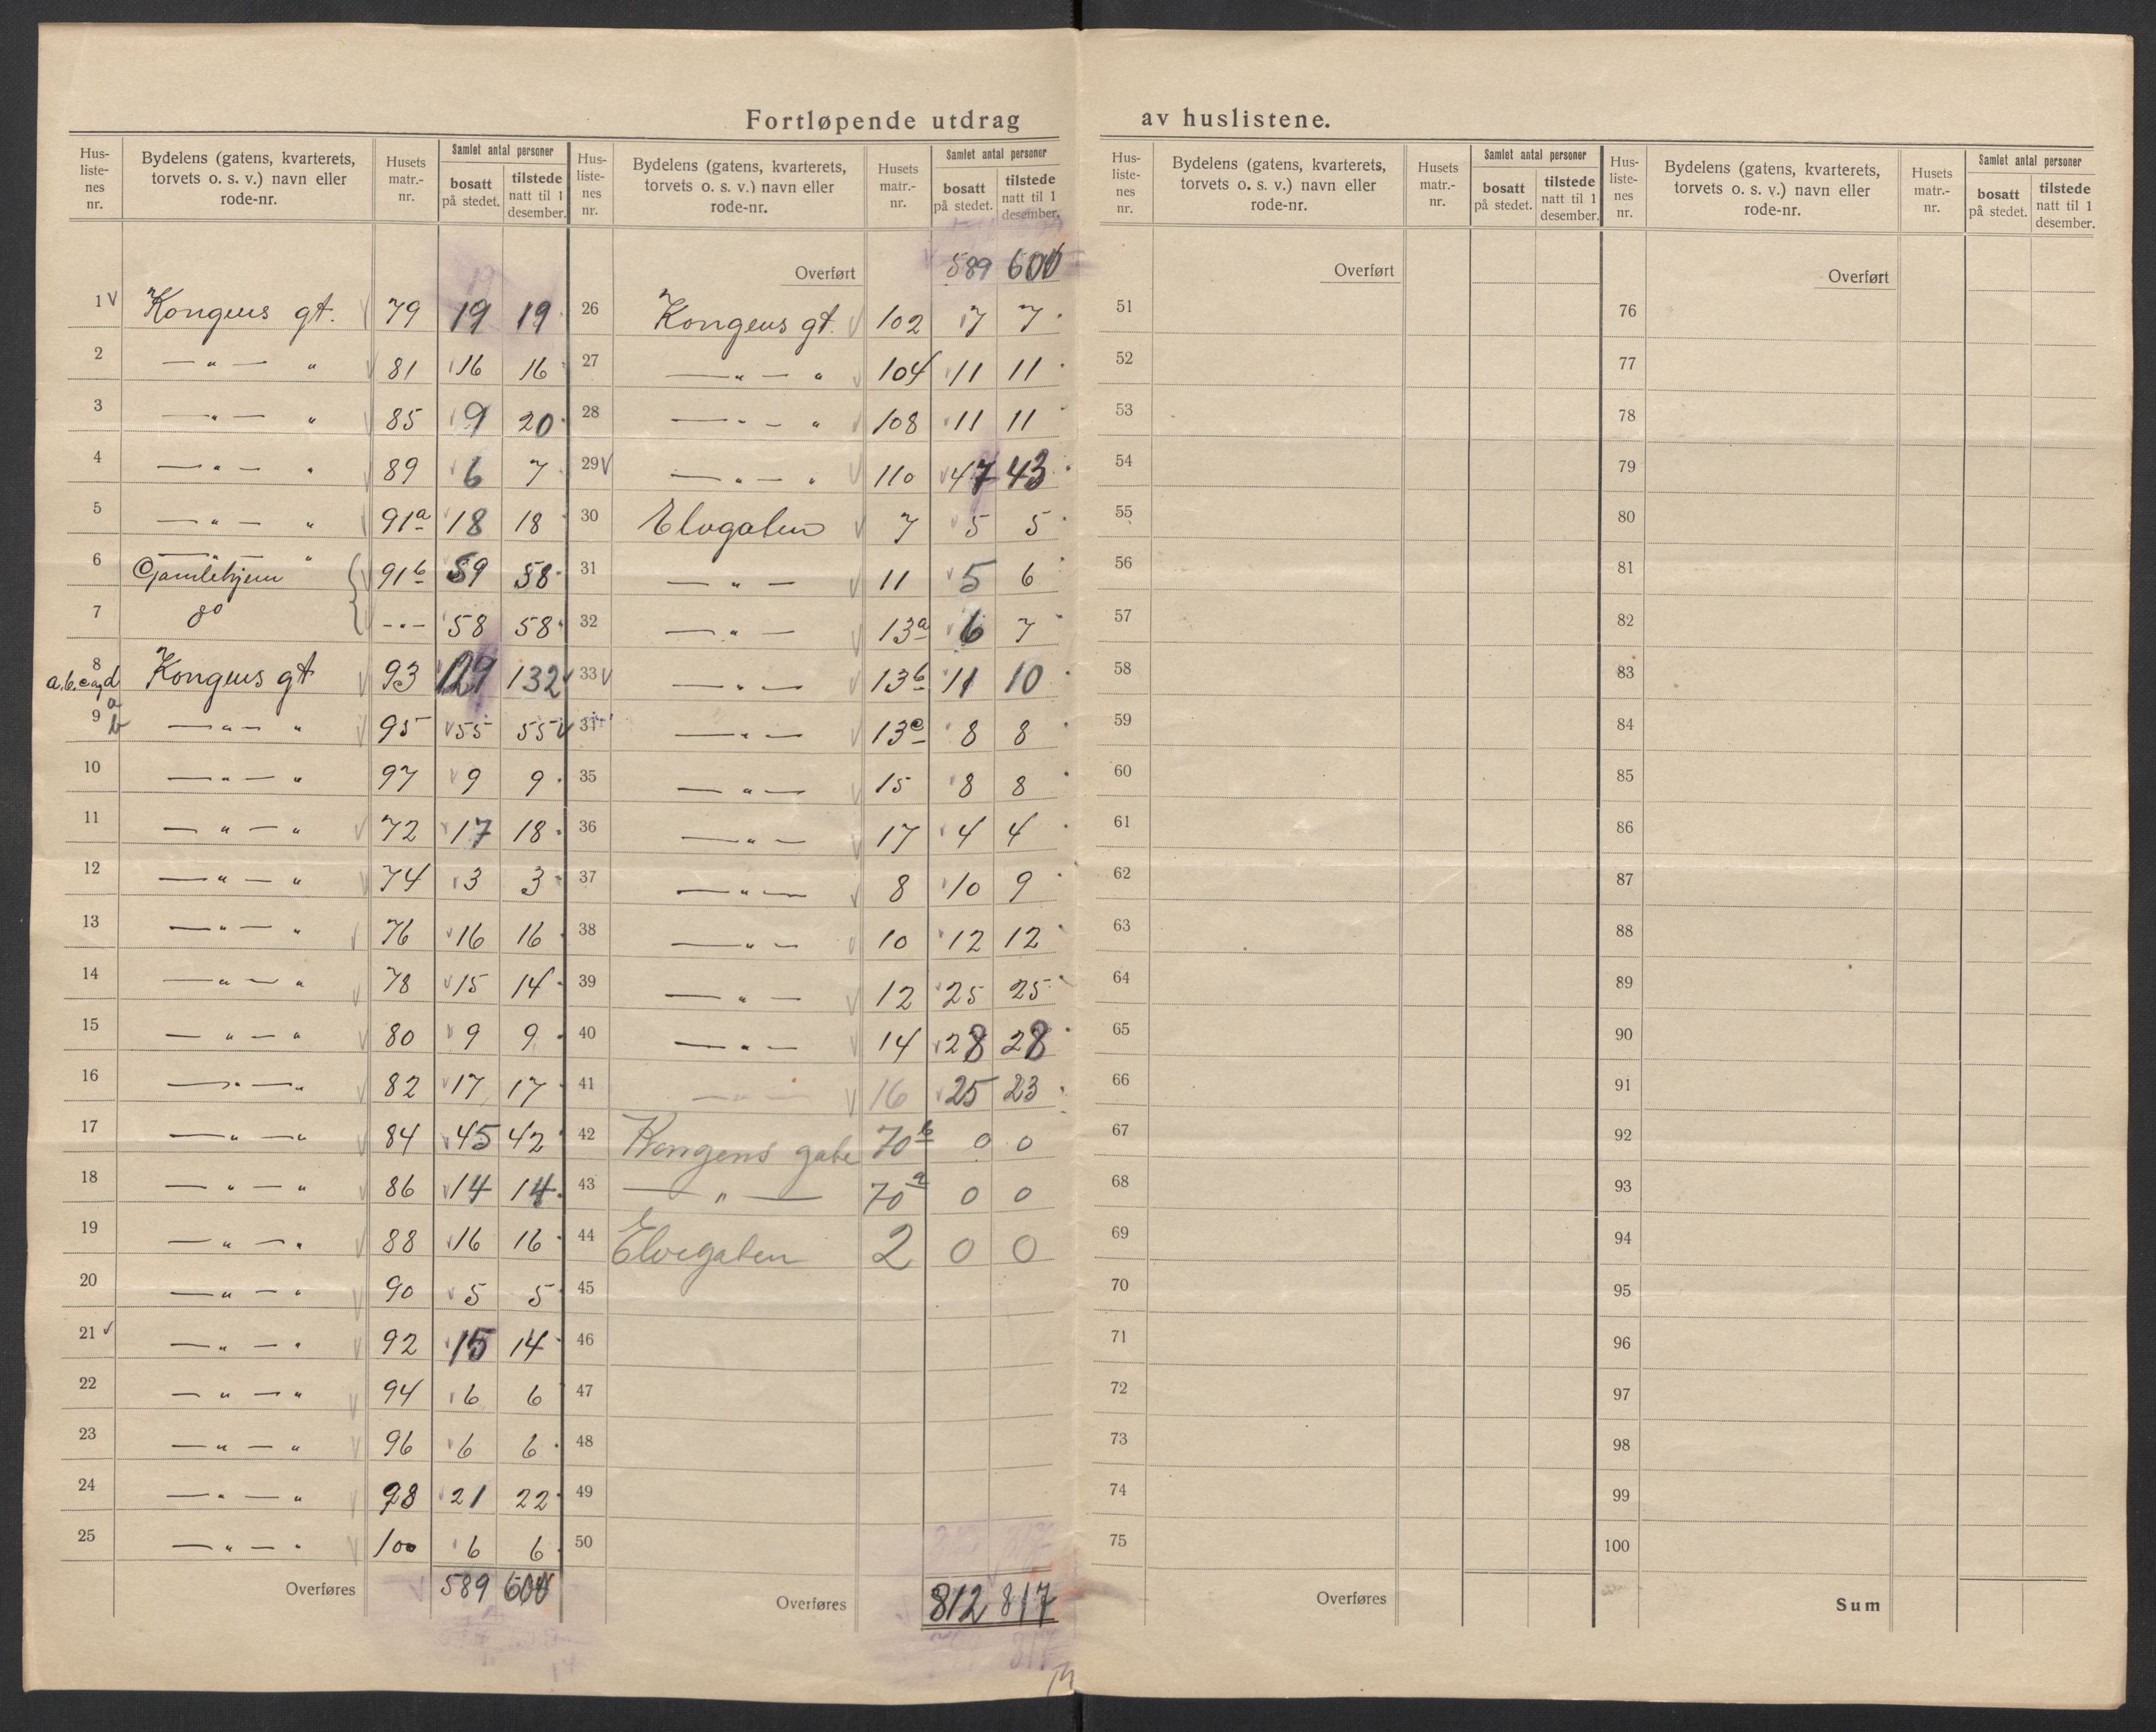 Fortløpende utdrag av huslistene.
Hus-liste-nes nr. | Bydelens (gatens, kvarterets, torvets o. s. v.) navn eller rode-nr. | Husets matr.-nr. | Samlet antal personer | bosatt på stedet. | tilstede natt til 1 desember.
1 Kongens gt. 79 19 19
2 — " — " 81 16 16
3 — " — " 85 9 20
4 — " — " 89 6 7
5 — " — " 91a 18 18
6 — " — " Gamlehjem 91b 59 58
7 do - " - 58 58
8 a.b.c og d Kongens gt 93 129 132
9 a b — " — " 95 55 55
10 — " — " 97 9 9
11 — " — " 72 17 18
12 — " — " 74 3 3
13 — " — " 76 16 16
14 — " — " 78 15 14
15 — " — " 80 9 9
16 — " — " 82 17 17
17 — " — " 84 45 42
18 — " — " 86 14 14
19 — " — " 88 16 16
20 — " — " 90 5 5
21 — " — " 92 15 14
22 — " — " 94 6 6
23 — " — " 96 6 6
24 — " — " 98 21 22
25 — " — " 100 6 6
Overføres 589 600
Hus-liste-nes nr. | Bydelens (gatens, kvarterets, torvets o. s. v.) navn eller rode-nr. | Husets matr.-nr. | Samlet antal personer | bosatt på stedet. | tilstede natt til 1 desember.
Overført 589 600
26 Kongens gt. 102 7 7
27 — " — " 104 11 11
28 — " — " 108 11 11
29 — " — " 110 47 43
30 Elvegaten 7 5 5
31 — " — 11 5 6
32 — " — 13a 6 7
33 — " — 13b 11 10
34 — " — 13c 8 8
35 — " — 15 8 8
36 — " — 17 4 4
37 — " — 8 10 9
38 — " — 10 12 12
39 — " — 12 25 25
40 — " — 14 28 28
41 — " — 16 25 23
42 Kongens gate 70b 0 0
43 — " — 70a 0 0
44 Elvegaten 2 0 0
45
46
47
48
49
50
Overføres 812 817
Hus-liste-nes nr. | Bydelens (gatens, kvarterets, torvets o. s. v.) navn eller rode-nr. | Husets matr.-nr. | Samlet antal personer | bosatt på stedet. | tilstede natt til 1 desember.
Overført
51
52
53
54
55
56
57
58
59
60
61
62
63
64
65
66
67
68
69
70
71
72
73
74
75
Overføres
Hus-liste-nes nr. | Bydelens (gatens, kvarterets, torvets o. s. v.) navn eller rode-nr. | Husets matr.-nr. | Samlet antal personer | bosatt på stedet. | tilstede natt til 1 desember.
Overført
76
77
78
79
80
81
82
83
84
85
86
87
88
89
90
91
92
93
94
95
96
97
98
99
100
Sum